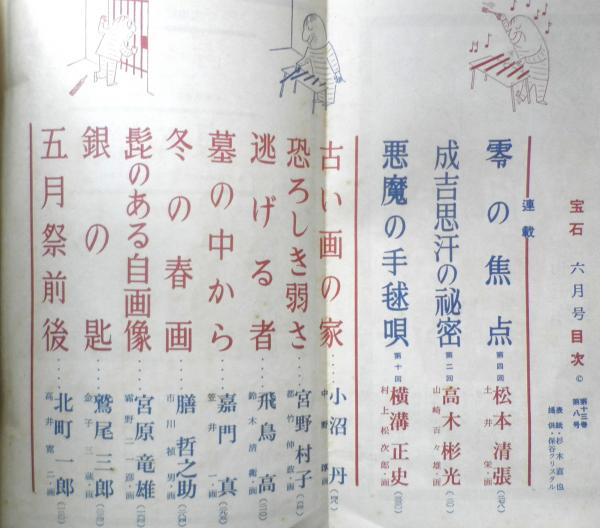 宝石 六月号目次 ©
第十三巻
第八号
表紙・杉木直也
連載
零の焦点
第四回
松本清張
土井栄・画
成吉思汗の秘密
第二回
高木彬光
山崎百々雄・画
悪魔の手毬唄
第十回
横溝正史
村上松次郎・画
古い画の家……
小沼丹
恐ろしき弱さ…
宮野村子
都竹伸政・画
逃げる者……
飛鳥高
鈴木清・画
墓の中から……
嘉門真
笠井一・画
冬の春画……
膳哲之助
市川禎男・画
髭のある自画像…
宮原竜雄
霜野二一彦・画
銀の匙……
鷲尾三郎
金子三蔵・画
五月祭前後……
北町一郎
高井寛二・画